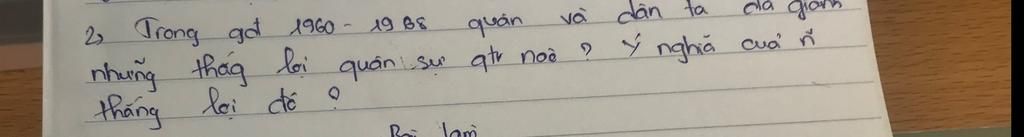 2, Trong gđ 1960 - 1968 quân và dân ta đã giành
những thág lợi quân sự qtr noè ? Ý nghiã cuả n~
thắng lợi đó ?
Bài làm